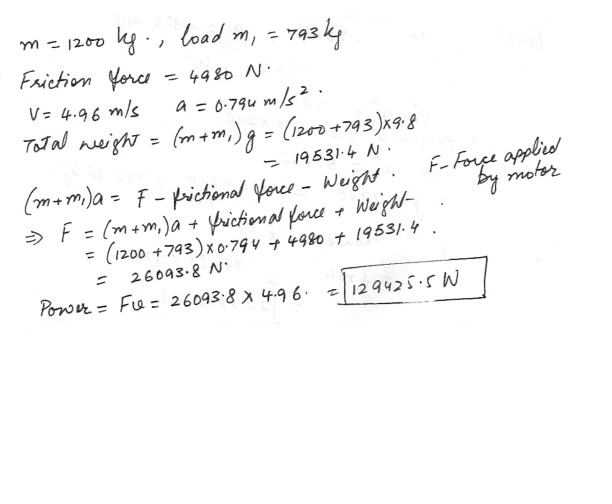 m = 1200 kg., load m₁ = 793 kg
Friction force = 4980 N.
V = 4.96 m/s a = 0.794 m/s².
Total weight = (m+m₁)g = (1200+793)×9.8
= 19531.4 N.
(m+m₁)a = F - frictional force - Weight. F - Force applied by motor
⇒ F = (m+m₁)a + frictional force + Weight.
= (1200+793)×0.794 + 4980 + 19531.4.
= 26093.8 N.
Power = Fv = 26093.8 × 4.96. = 129425.5 W